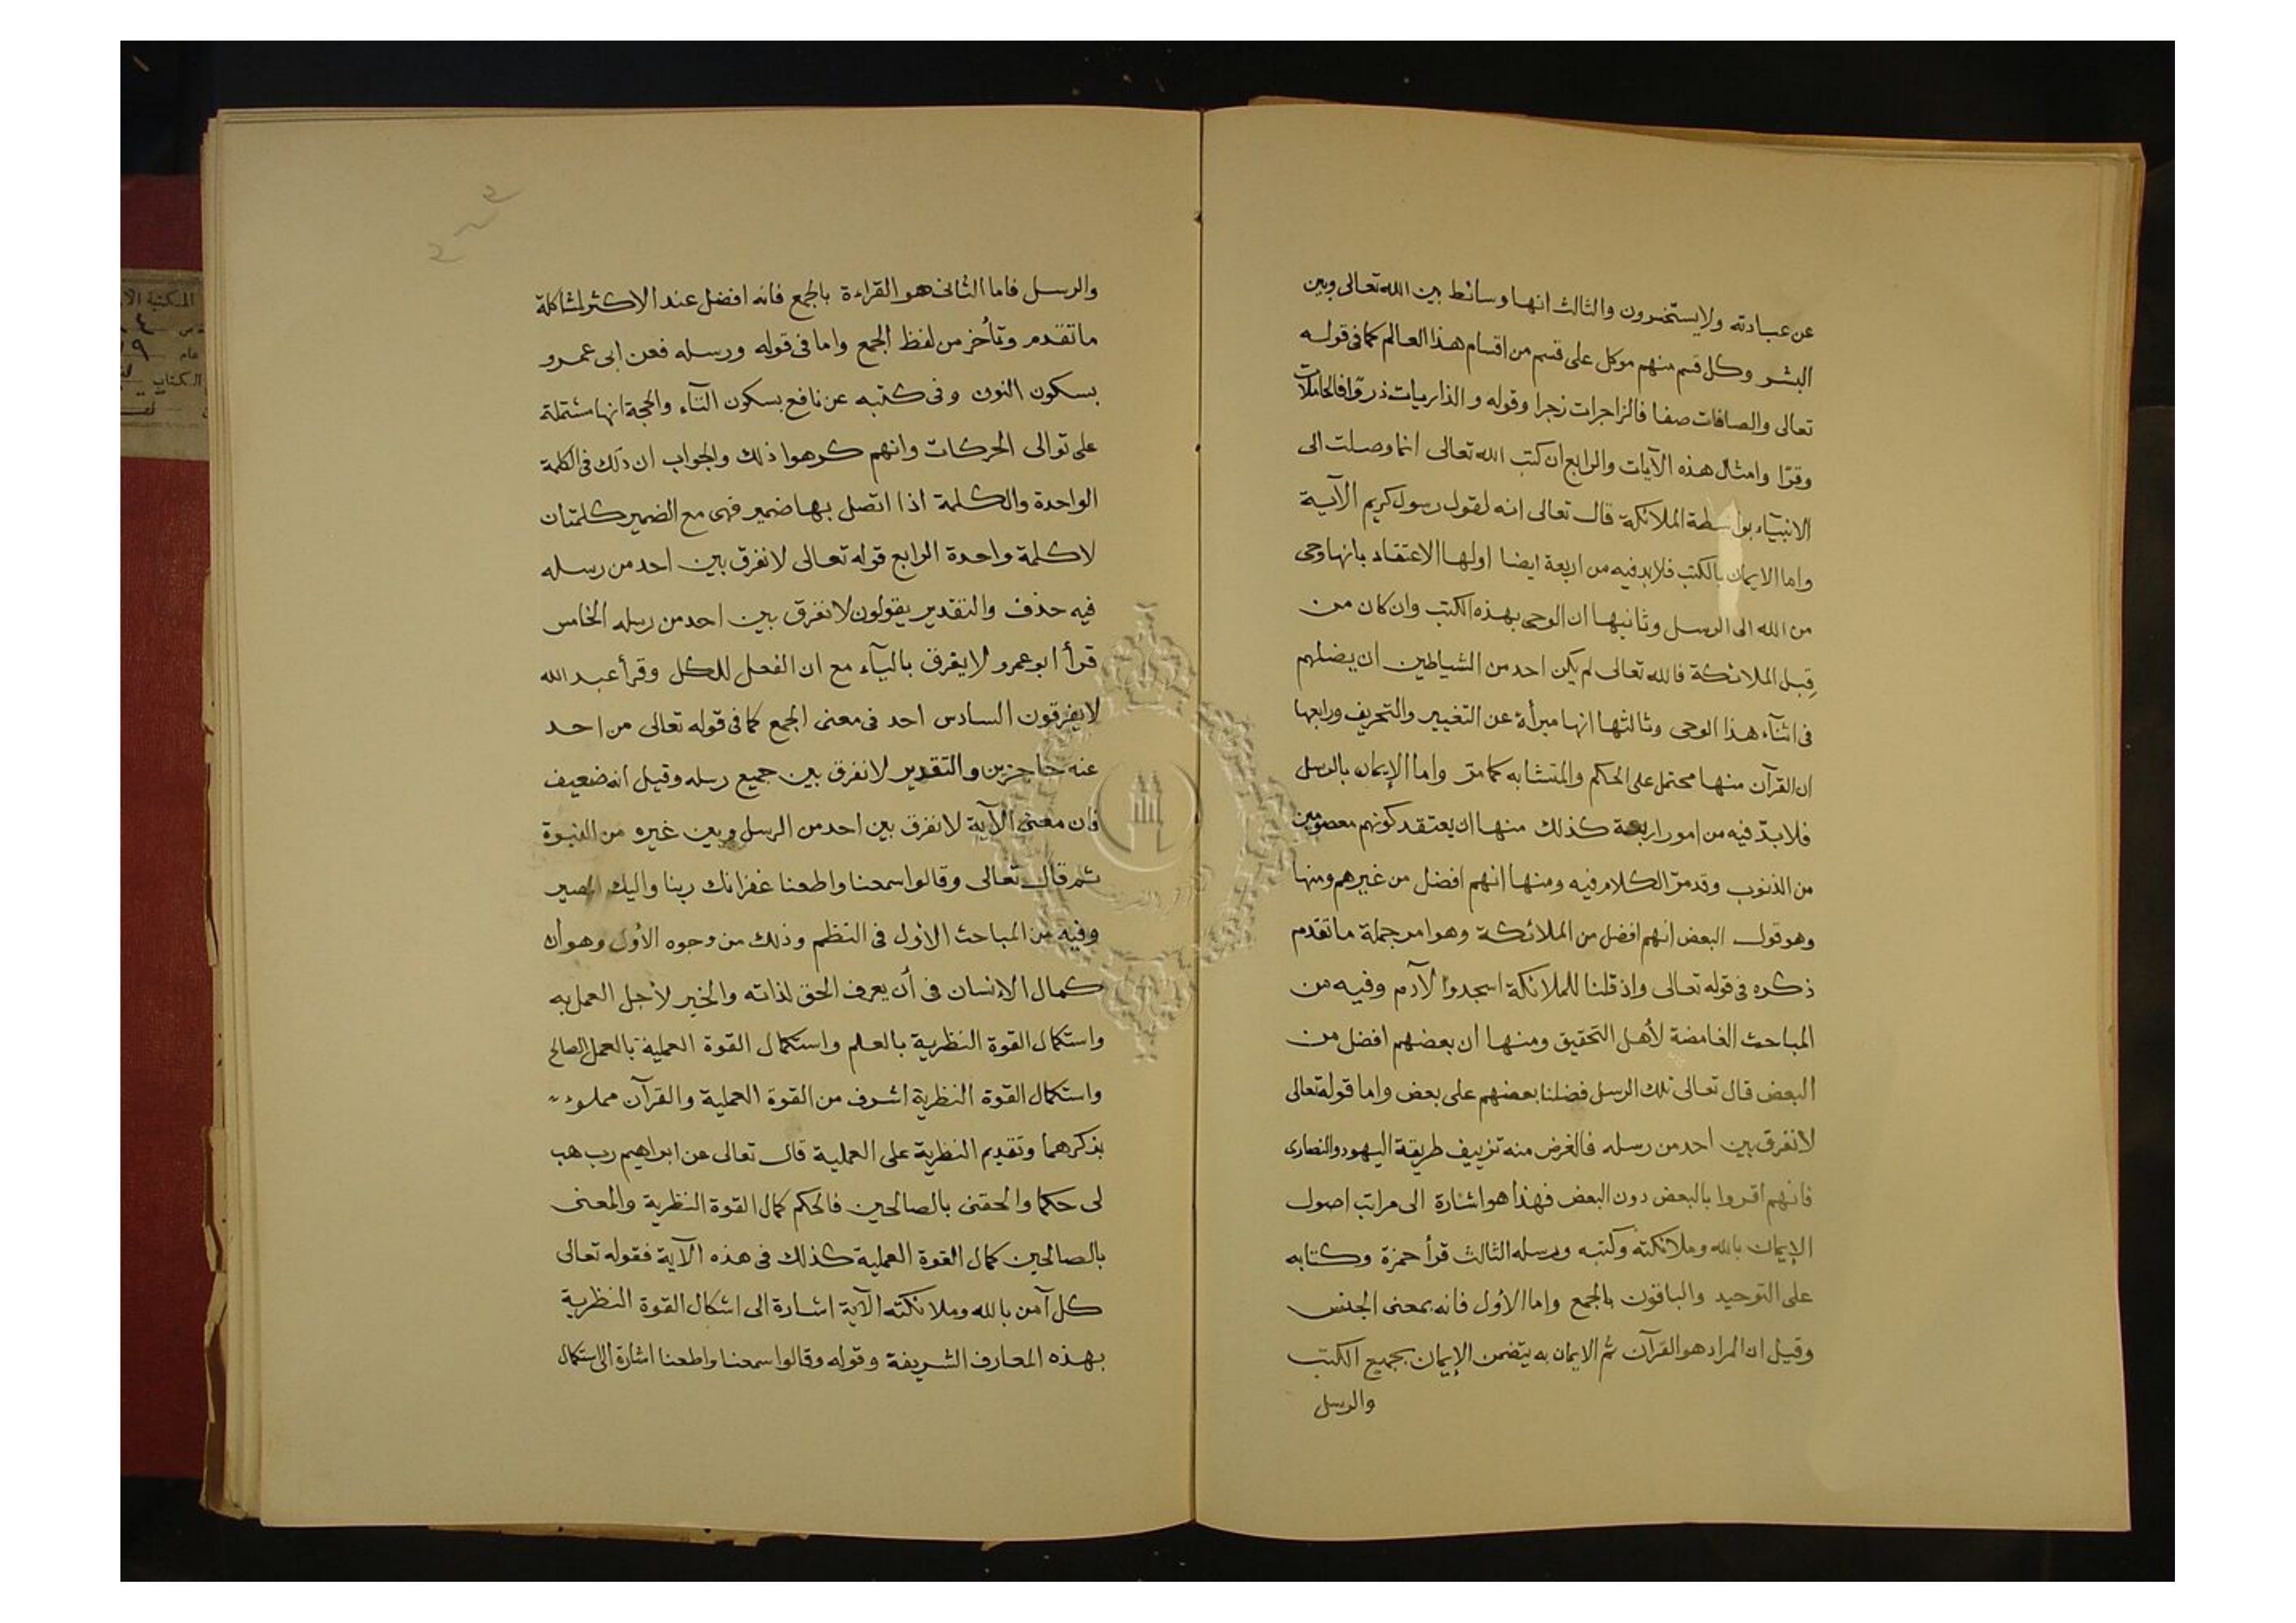 عن عبادته ولا يستحسرون والثالث انها وسائط بين الله تعالى وبين
البشر وكل قسم منهم موكل على قسم من اقسام هذا العالم كما فى قوله
تعالى والصافات صفا فالزاجرات زجرا وقوله والذاريات ذروًا فالحاملات
وقرًا وامثال هذه الآيات والرابع ان كتب الله تعالى انما وصلت الى
الانبيآء بواسطة الملائكة قال تعالى انه لقول رسول كريم الآية
واما الايمان بالكتب فلا بد فيه من اربعة ايضا اولها الاعتقاد بانها وحى
من الله الى الرسل وثانيها ان الوحى بهذه الكتب وان كان من
قِبل الملائكة فالله تعالى لم يكن احد من الشياطين ان يضلهم
فى اثنآء هذا الوحى وثالثها انها مبرأة عن التغيير والتحريف ورابعها
ان القرآن منها محتمل على المحكم والمتشابه كما مرّ واما الإيمان بالرسل
فلا بدّ فيه من امور اربعة كذلك منها ان يعتقد كونهم معصومين
من الذنوب وقد مرّ الكلام فيه ومنها انهم افضل من غيرهم ومنها
وهو قول البعض انهم افضل من الملائكة وهوا مر جملة ما تقدم
ذكره فى قوله تعالى وإذ قلنا للملائكة اسجدوا لآدم وفيه من
المباحث الغامضة لأهل التحقيق ومنها ان بعضهم افضل من
البعض قال تعالى تلك الرسل فضلنا بعضهم على بعض واما قوله تعالى
لا نفرق بين احد من رسله فالغرض منه تزييف طريقة اليهود والنصارى
فانهم اقروا بالبعض دون البعض فهذا هو اشارة الى مراتب اصول
الإيمان بالله وملائكته وكتبه ورسله الثالث قرأ حمزة وكتابه
على التوحيد والباقون بالجمع واما الأول فانه بمعنى الجنس
وقيل ان المراد هو القرآن ثم الايمان به يتضمن الإيمان بجميع الكتب
والرسل
والرسل فاما الثانى هو القراءة بالجمع فانه افضل عند الاكثر لمشاكلة
ما تقدم وتأخر من لفظ الجمع واما فى قوله ورسله فعن ابى عمرو
بسكون النون وفى كتبه عن نافع بسكون التآء والحجة انها مشتملة
على توالى الحركات وانهم كرهوا ذلك والجواب ان ذلك فى الكلمة
الواحدة والكلمة اذا اتصل بها ضمير فهى مع الضمير كلمتان
لا كلمة واحدة الرابع قوله تعالى لا نفرق بين احد من رسله
فيه حذف والتقدير يقولون لا نفرق بين احد من رسله الخامس
قرأ ابو عمرو لا يفرق باليآء مع ان الفعل للكل وقرأ عبد الله
لا يفرقون السادس احد فى معنى الجمع كما فى قوله تعالى من احد
عنه حاجزين والتقدير لا نفرق بين جميع رسله وقيل انه ضعيف
فان معنى الآية لا نفرق بين احد من الرسل وبين غيره من النبوة
ثم قال تعالى وقالوا سمعنا واطعنا غفرانك ربنا واليك المصير
وفيه من المباحث الأول فى النظم وذلك من وجوه الأول وهو أن
كمال الانسان فى أن يعرف الحق لذاته والخير لأجل العمل به
واستكمال القوة النظرية بالعلم واستكمال القوة العملية بالعمل الصالح
واستكمال القوة النظرية اشرف من القوة العملية والقرآن مملوء
بذكرهما وتقديم النظرية على العملية قال تعالى عن ابراهيم رب هب
لى حكما والحقنى بالصالحين فالحكم كمال القوة النظرية والمعنى
بالصالحين كمال القوة العملية كذلك فى هذه الآية فقوله تعالى
كل آمن بالله وملائكته الآية اشارة الى اشكال القوة النظرية
بهذه المعارف الشريفة وقوله وقالوا سمعنا واطعنا اشارة الى استكمال